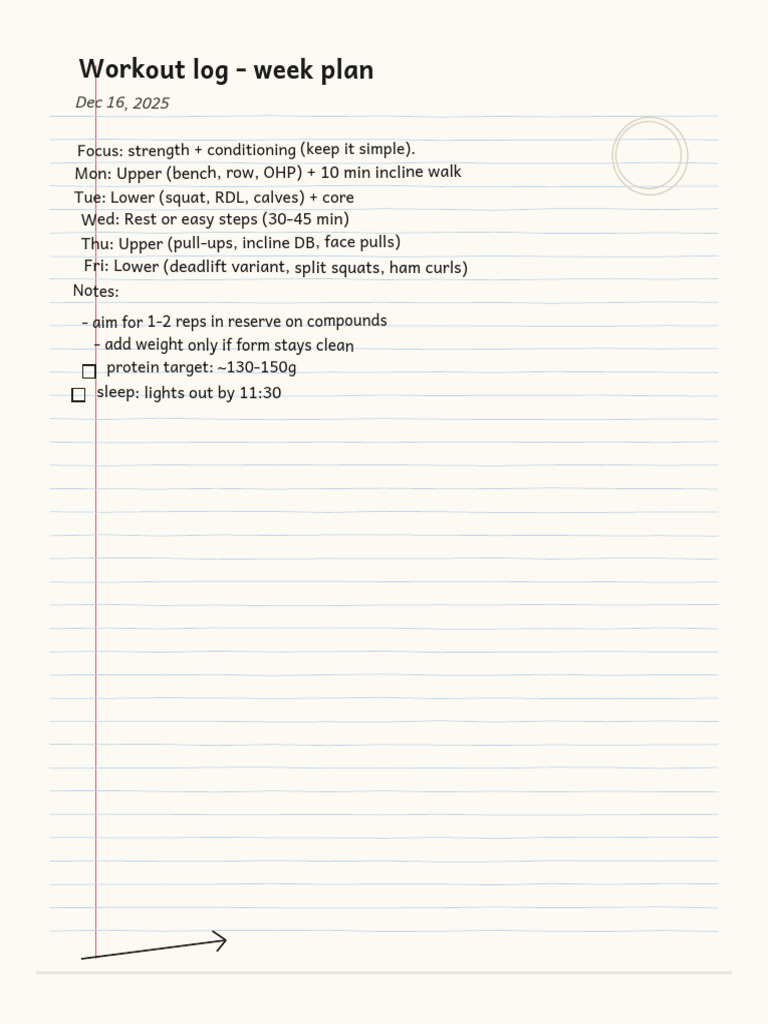 Workout log - week plan
Dec 16, 2025
Focus: strength + conditioning (keep it simple).
Mon: Upper (bench, row, OHP) + 10 min incline walk
Tue: Lower (squat, RDL, calves) + core
Wed: Rest or easy steps (30-45 min)
Thu: Upper (pull-ups, incline DB, face pulls)
Fri: Lower (deadlift variant, split squats, ham curls)
Notes:
- aim for 1-2 reps in reserve on compounds
- add weight only if form stays clean
☐ protein target: ~130-150g
☐ sleep: lights out by 11:30